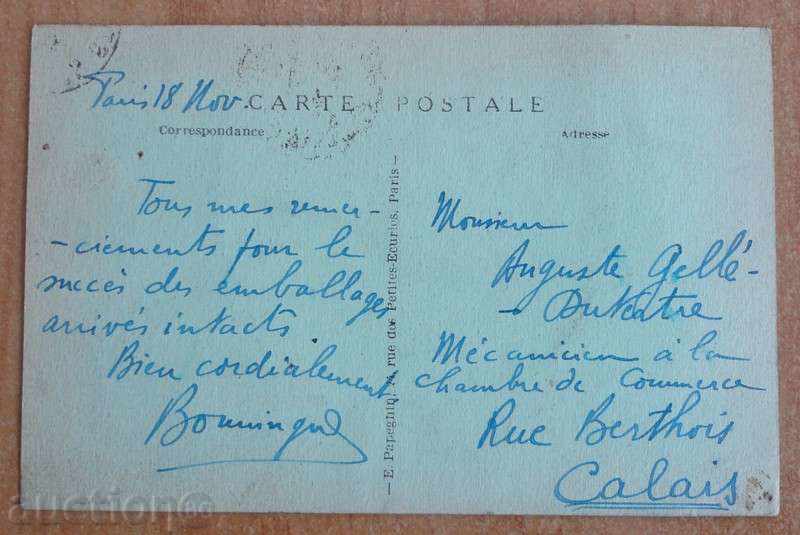 Paris 18 Nov.
CARTE POSTALE
Correspondance
Adresse
Tous mes remer-
-ciements pour le
succès des emballages
arrivés intacts
Bien cordialement
Monsieur
Auguste Gellé-
- Dutertre
Mécanicien à la
chambre de Commerce
Rue Berthois
Calais
— E. Papeghin, rue des Petites-Ecuries, Paris —
auction